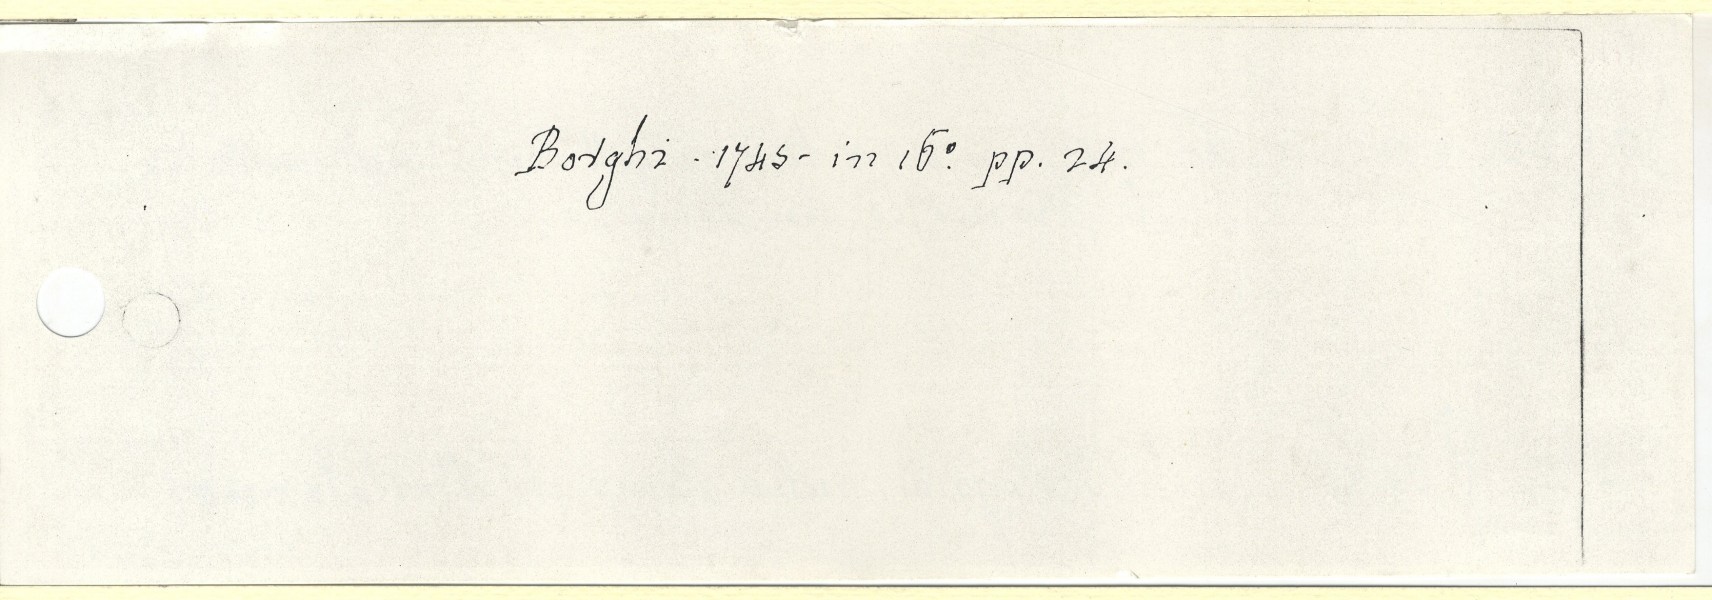 Borghi - 1745 - in 16º. pp. 24.